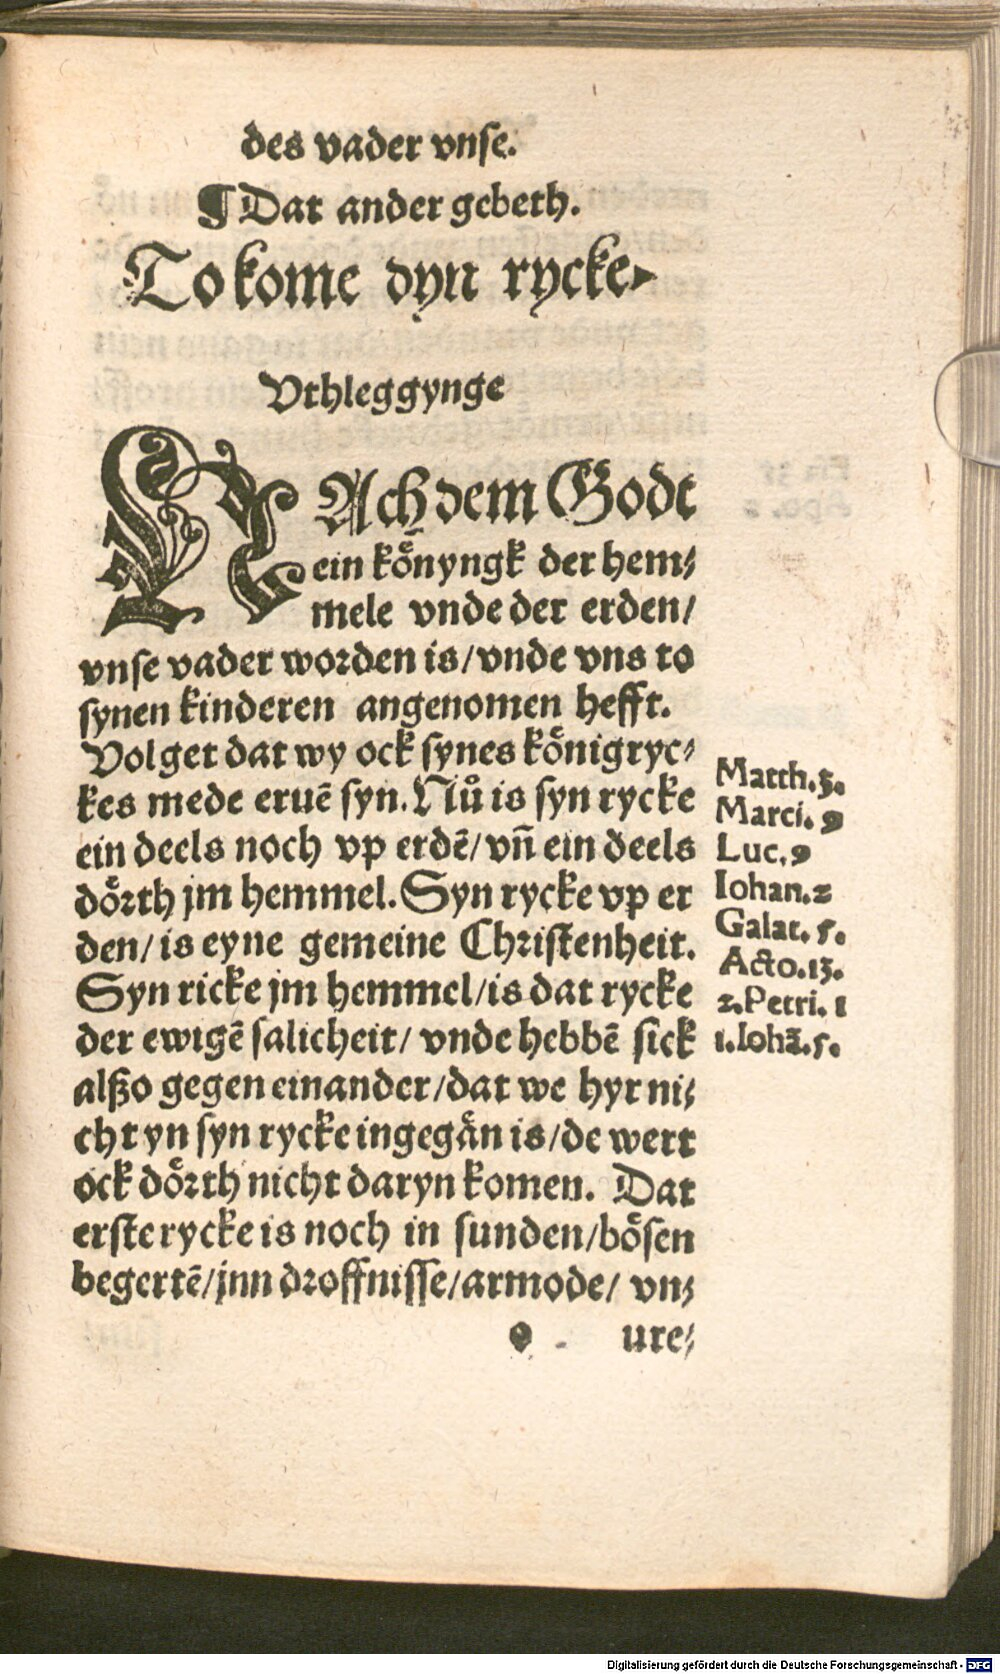 des vader vnse.
¶ Dat ander gebeth.
To kome dyn rycke.
Vthleggynge
NAch dem Godt
ein koͤnyngk der hem⸗
mele vnde der erden/
vnse vader worden is/vnde vns to
synen kinderen angenomen hefft.
Volget dat wy ock synes koͤnigryc⸗
kes mede eruē syn. Nuͦ is syn rycke
ein deels noch vp erdē/vñ ein deels
doͤrth jm hemmel. Syn rycke vp er
den/is eyne gemeine Christenheit.
Syn ricke jm hemmel/is dat rycke
der ewigē salicheit/ vnde hebbē sick
alßo gegen einander/dat we hyr ni⸗
cht yn syn rycke ingegaͤn is/de wert
ock doͤrth nicht daryn komen. Dat
erste rycke is noch in sunden/boͤsen
begertē/jnn droffnisse/armode/ vn⸗
ure⸗
Matth.3.
Marci. 9
Luc. 9
Iohan.2
Galat. 5.
Acto.13.
2.Petri. 1
1.Iohā.5.
Digitalisierung gefördert durch die Deutsche Forschungsgemeinschaft - DFG